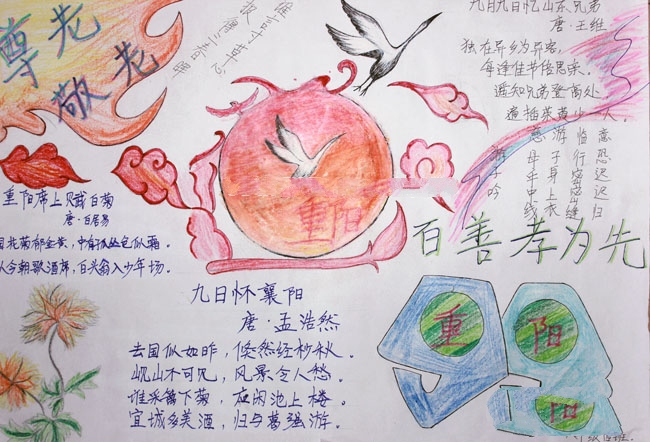 尊老
敬老
谁言寸草心
报得三春晖
九月九日忆山东兄弟
唐·王维
独在异乡为异客，
每逢佳节倍思亲。
遥知兄弟登高处
遍插茱萸少一人。
游子吟
慈母手中线
游子身上衣
临行密密缝
意恐迟迟归
重阳
重阳席上赋白菊
唐·白居易
园花菊郁金黄，中有孤丛色似霜。
从今朝歌酒席，白头翁入少年场。
百善孝为先
九日怀襄阳
唐·孟浩然
去国似如昨，倏然经杪秋。
岘山不可见，风景令人愁。
谁采篱下菊，应闲池上楼。
宜城多美酒，归与葛强游。
重
阳
阳